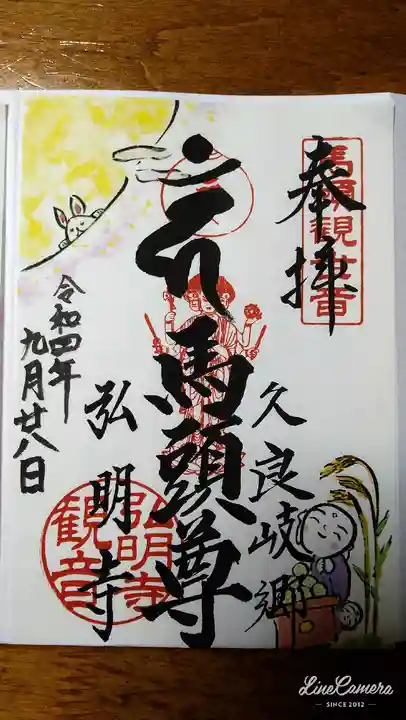 奉拝
馬頭観世音
久良岐郷
馬頭尊
弘明寺
弘明寺
観音
令和四年
九月廿八日
LineCamera
SINCE 2012